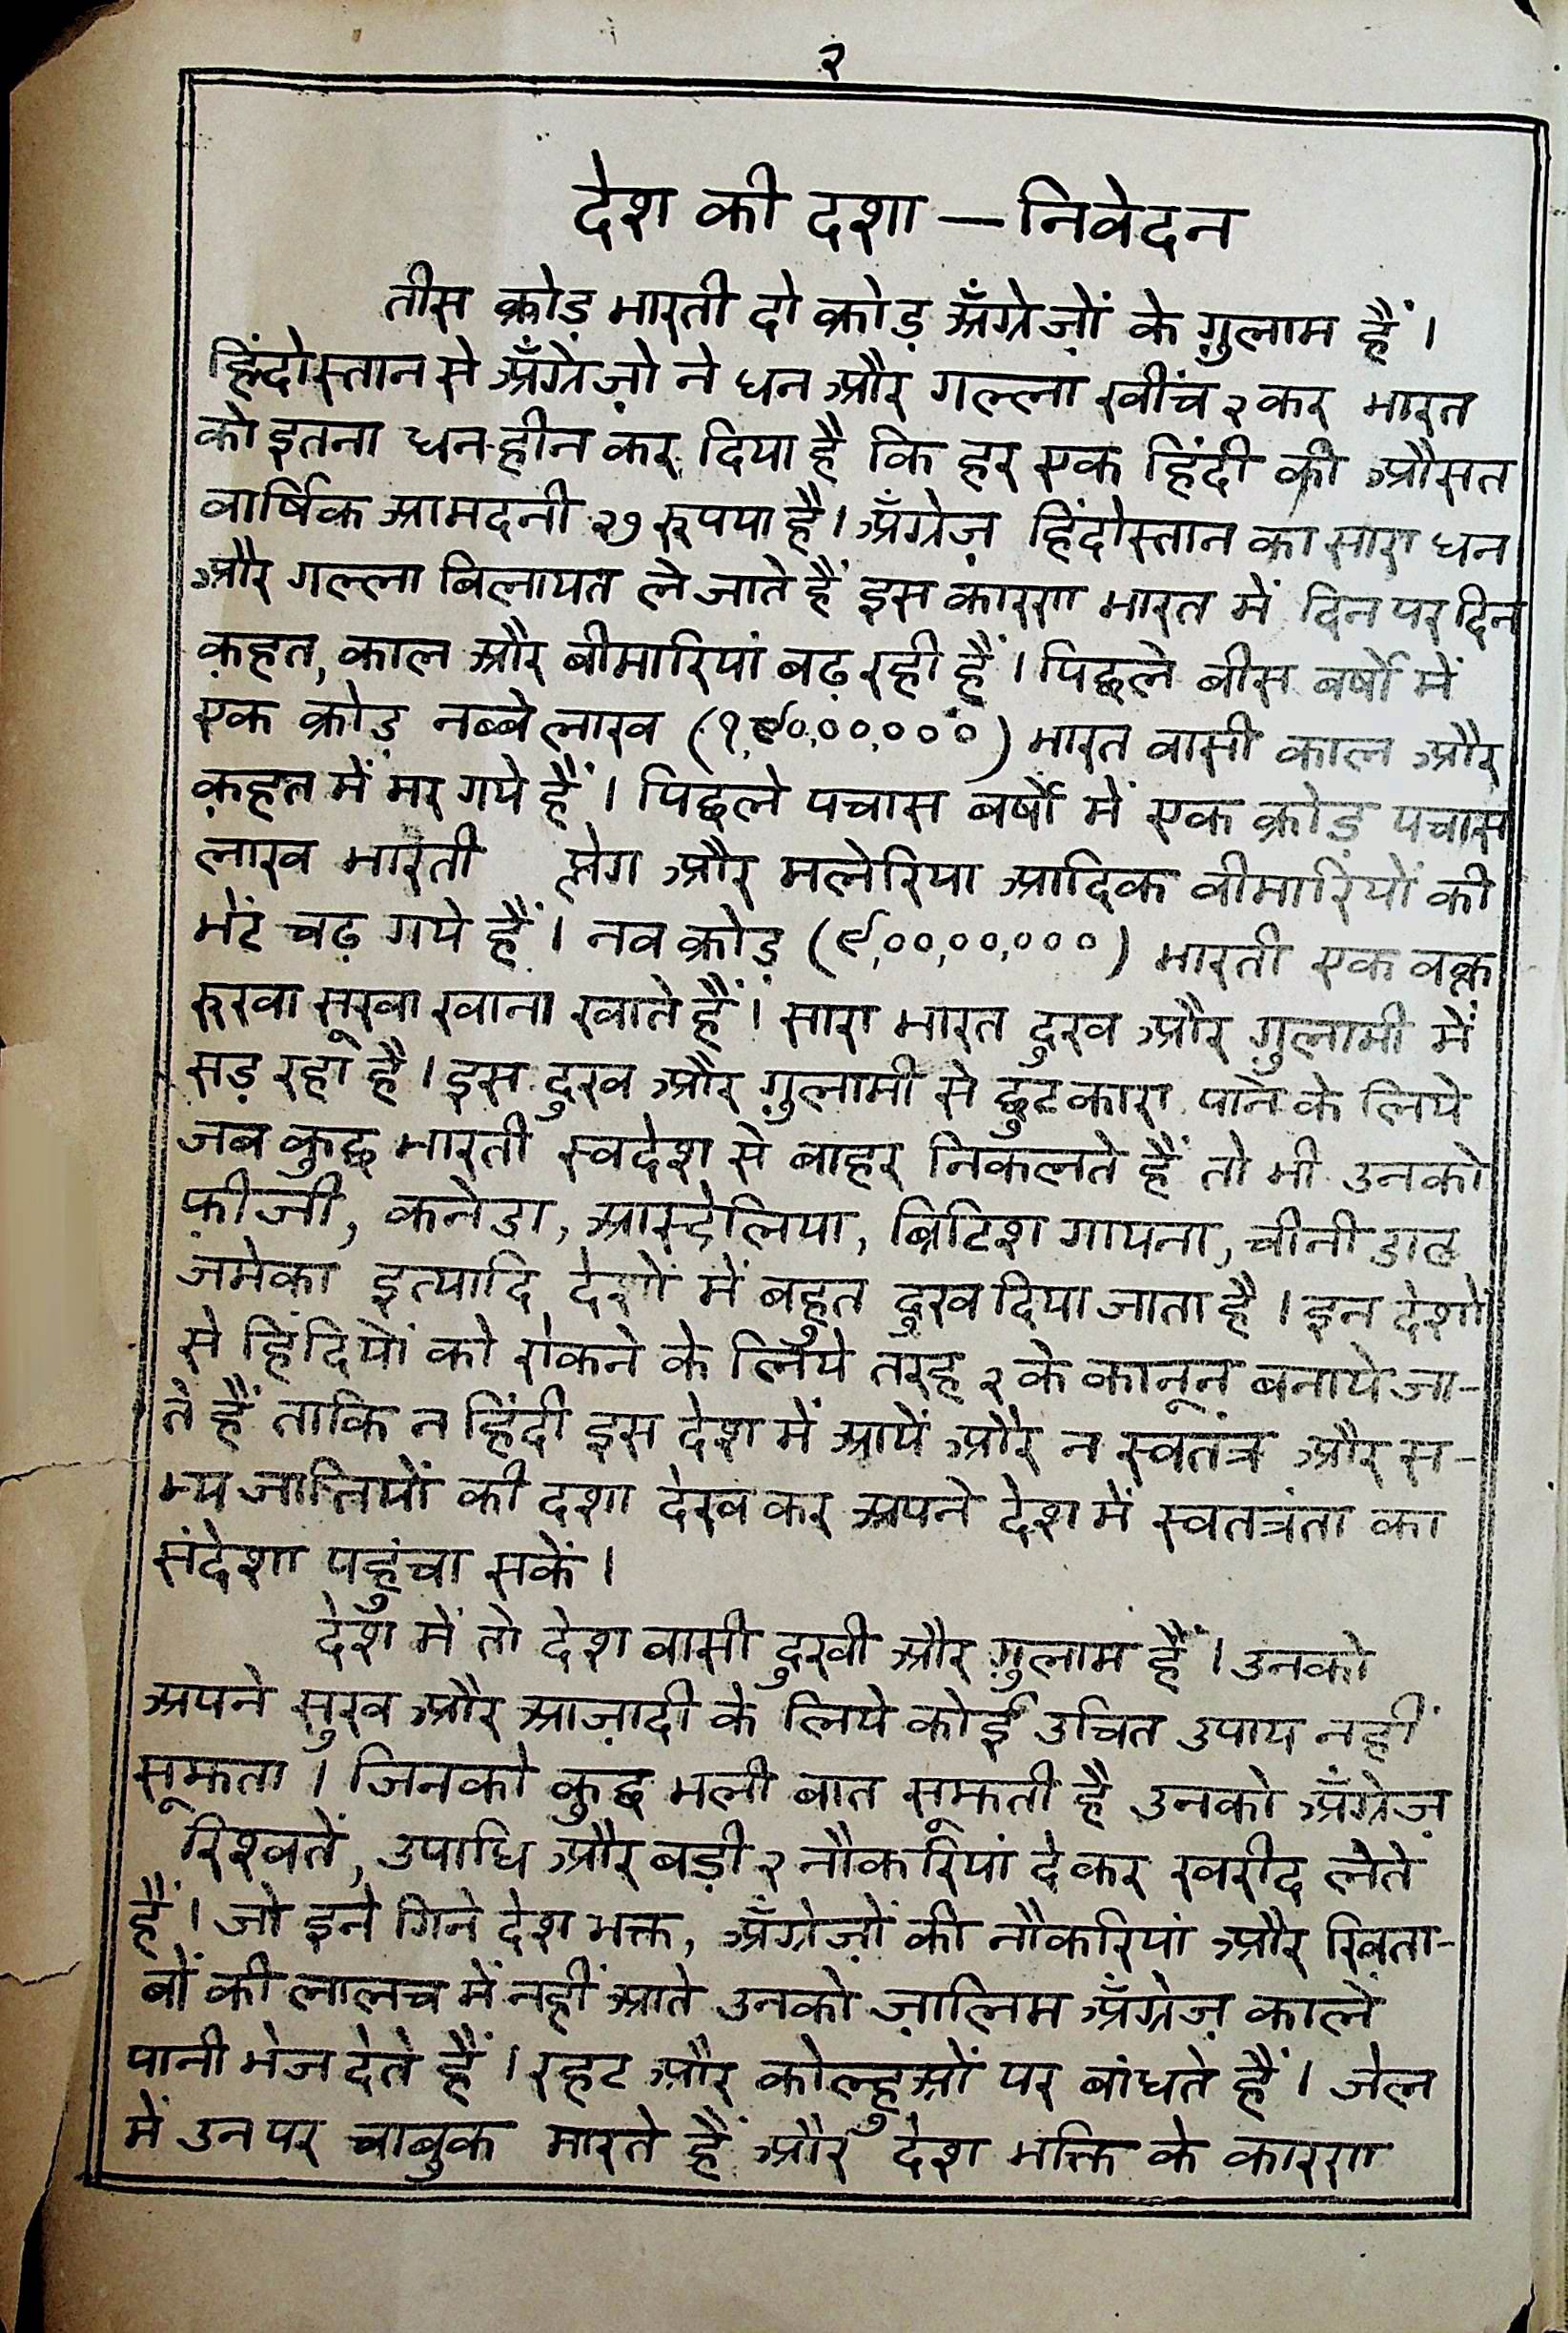 २
देश की दशा — निवेदन
तीस क्रोड़ भारती दो क्रोड़ अँग्रेज़ों के ग़ुलाम हैं।
हिंदोस्तान से अँग्रेज़ो ने धन और गल्ला खींच २ कर भारत
को इतना धन-हीन कर दिया है कि हर एक हिंदी की औसत
वार्षिक आमदनी २७ रुपया है। अँग्रेज़ हिंदोस्तान का सारा धन
और गल्ला बिलायत ले जाते हैं इस कारण भारत में दिन पर दिन
क़हत, काल और बीमारियां बढ़ रही हैं। पिछले बीस वर्षो में
एक क्रोड़ नब्बे लाख (१,९०,००,०००) भारत वासी काल और
क़हत में मर गये हैं। पिछले पचास बर्षो में एक क्रोड़ पचास
लाख भारती प्लेग और मलेरिया आदिक वीमारियों की
भेंट चढ़ गये हैं। नव क्रोड़ (९,००,००,०००) भारती एक वक्त
रुखा सूखा खाना खाते हैं। सारा भारत दुख और ग़ुलामी में
सड़ रहा है। इस दुख और ग़ुलामी से छुटकारा पाने के लिये
जब कुछ भारती स्वदेश से बाहर निकलते हैं तो भी उनको
फ़ीजी, कनेडा, आस्ट्रेलिया, ब्रिटिश गायना, चीनी डाट
जमेका इत्यादि देशों में बहुत दुख दिया जाता है। इन देशों
से हिंदियों को रोकने के लिये तरह २ के कानून बनाये जा-
ते हैं ताकि न हिंदी इस देश में आयें और न स्वतंत्र और स-
भ्य जातियों की दशा देख कर अपने देश में स्वतत्रंता का
संदेशा पहुंचा सकें।
देश में तो देश वासी दुखी और ग़ुलाम हैं। उनको
अपने सुख और आज़ादी के लिये कोई उचित उपाय नहीं
सूझता। जिनको कुछ भली बात सूझती है उनको अँग्रेज़
रिश्वतें, उपाधि और बड़ी २ नौकरियां देकर खरीद लेते
हैं। जो इने गिने देश भक्त, अँग्रेज़ों की नौकरियां और खिता-
बों की लालच में नहीं आते उनको ज़ालिम अँग्रेज़ काले
पानी भेज देते हैं। रहट और कोल्हुओं पर बांधते हैं। जेल
में उन पर चाबुक मारते हैं और देश भक्ति के कारण